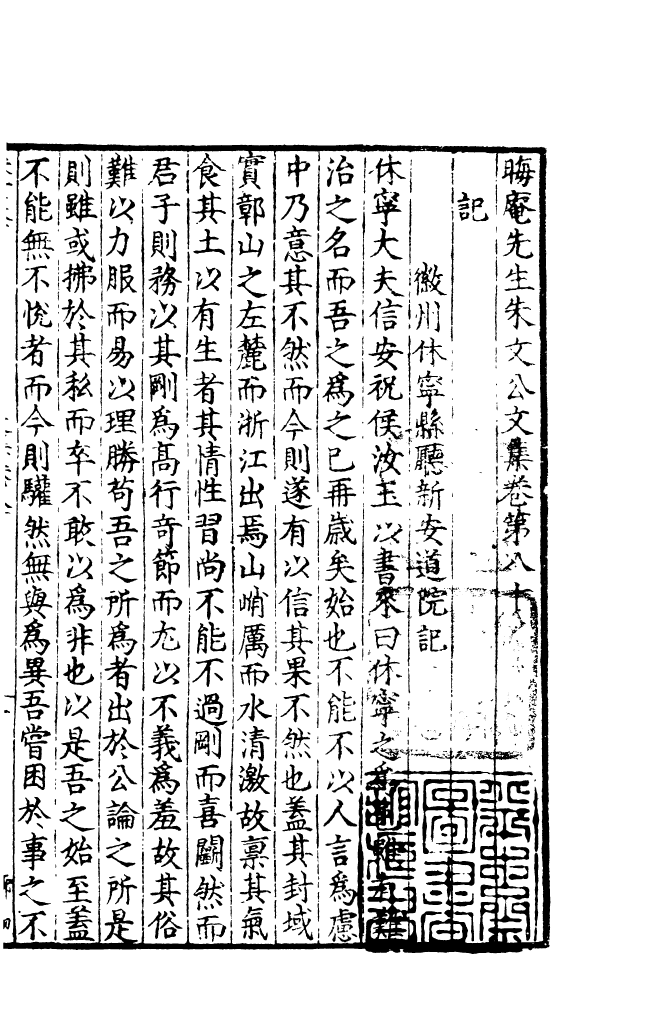 晦庵先生朱文公文集卷第八十
記
徽州休寧縣廳新安道院記
休寧大夫信安祝侯汝玉以書來曰休寧之爲邑雖有難
治之名而吾之爲之已再歲矣始也不能不以人言爲慮
中乃意其不然而今則遂有以信其果不然也蓋其封域
實鄣山之左麓而浙江出焉山峭厲而水清激故稟其氣
食其土以有生者其情性習尚不能不過剛而喜鬭然而
君子則務以其剛爲髙行奇節而尤以不義爲羞故其俗
難以力服而易以理勝苟吾之所爲者出於公論之所是
則雖或拂於其私而卒不敢以爲非也以是吾之始至蓋
不能無不恱者而今則驩然無與爲異吾嘗困於事之不